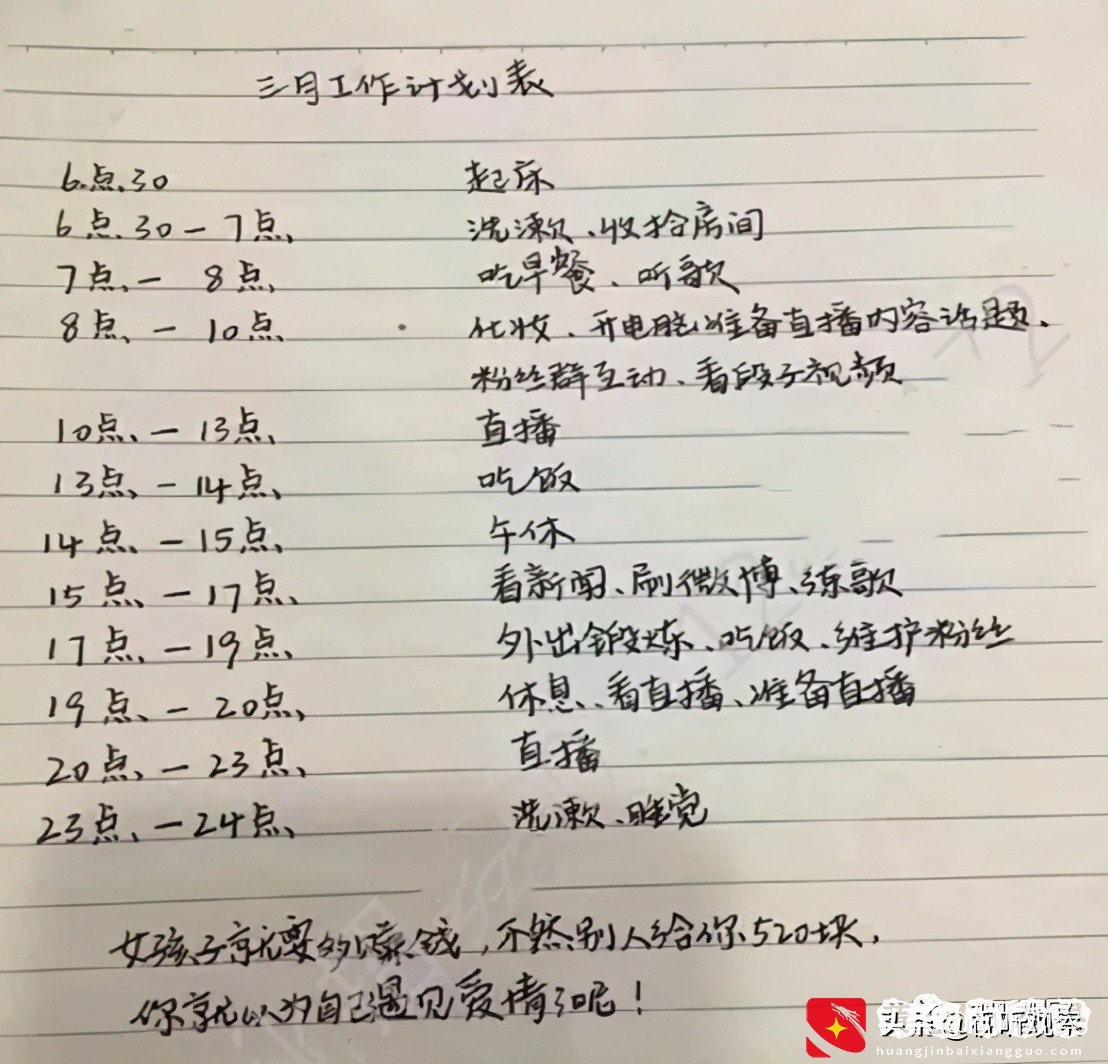 三月工作计划表
6.点.30 起床
6点.30-7点、 洗漱、收拾房间
7点、- 8点、 吃早餐、听歌
8点、- 10点、 化妆、开电脑准备直播内容话题、
粉丝群互动、看段子视频
10点、-13点、 直播
13点、-14点、 吃饭
14点、-15点、 午休
15点、-17点、 看新闻、刷微博、练歌
17点、-19点、 外出锻炼、吃饭、维护粉丝
19点、-20点、 休息、看直播、准备直播
20点、-23点、 直播
23点、-24点、 洗漱、睡觉
女孩子就要多赚钱,不然别人给你520块,
你就以为自己遇见爱情了呢!
huangjinbaixiangguo.com